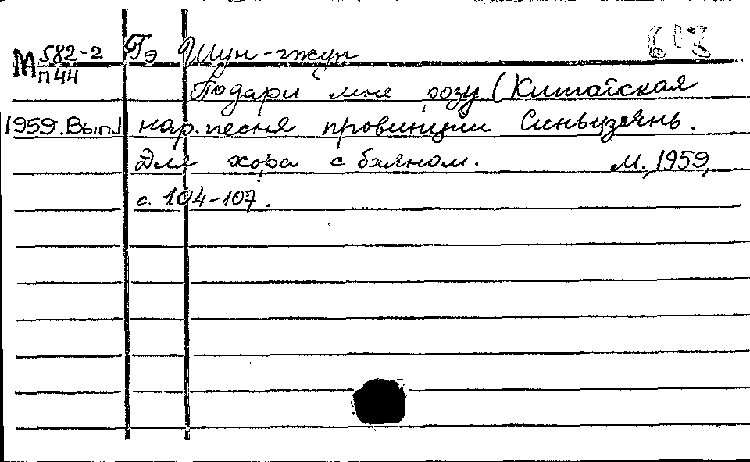 М 582-2 Гэ Шун-чжун
п 44
Подари мне розу (Китайская
1959. Вып.1 нар. песня провинции Синьцзянь.
Для хора с баяном. М., 1959,
с. 104-107.